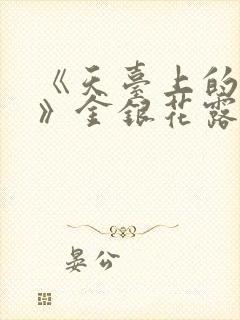 《天臺上的
》金銀花露
晏公